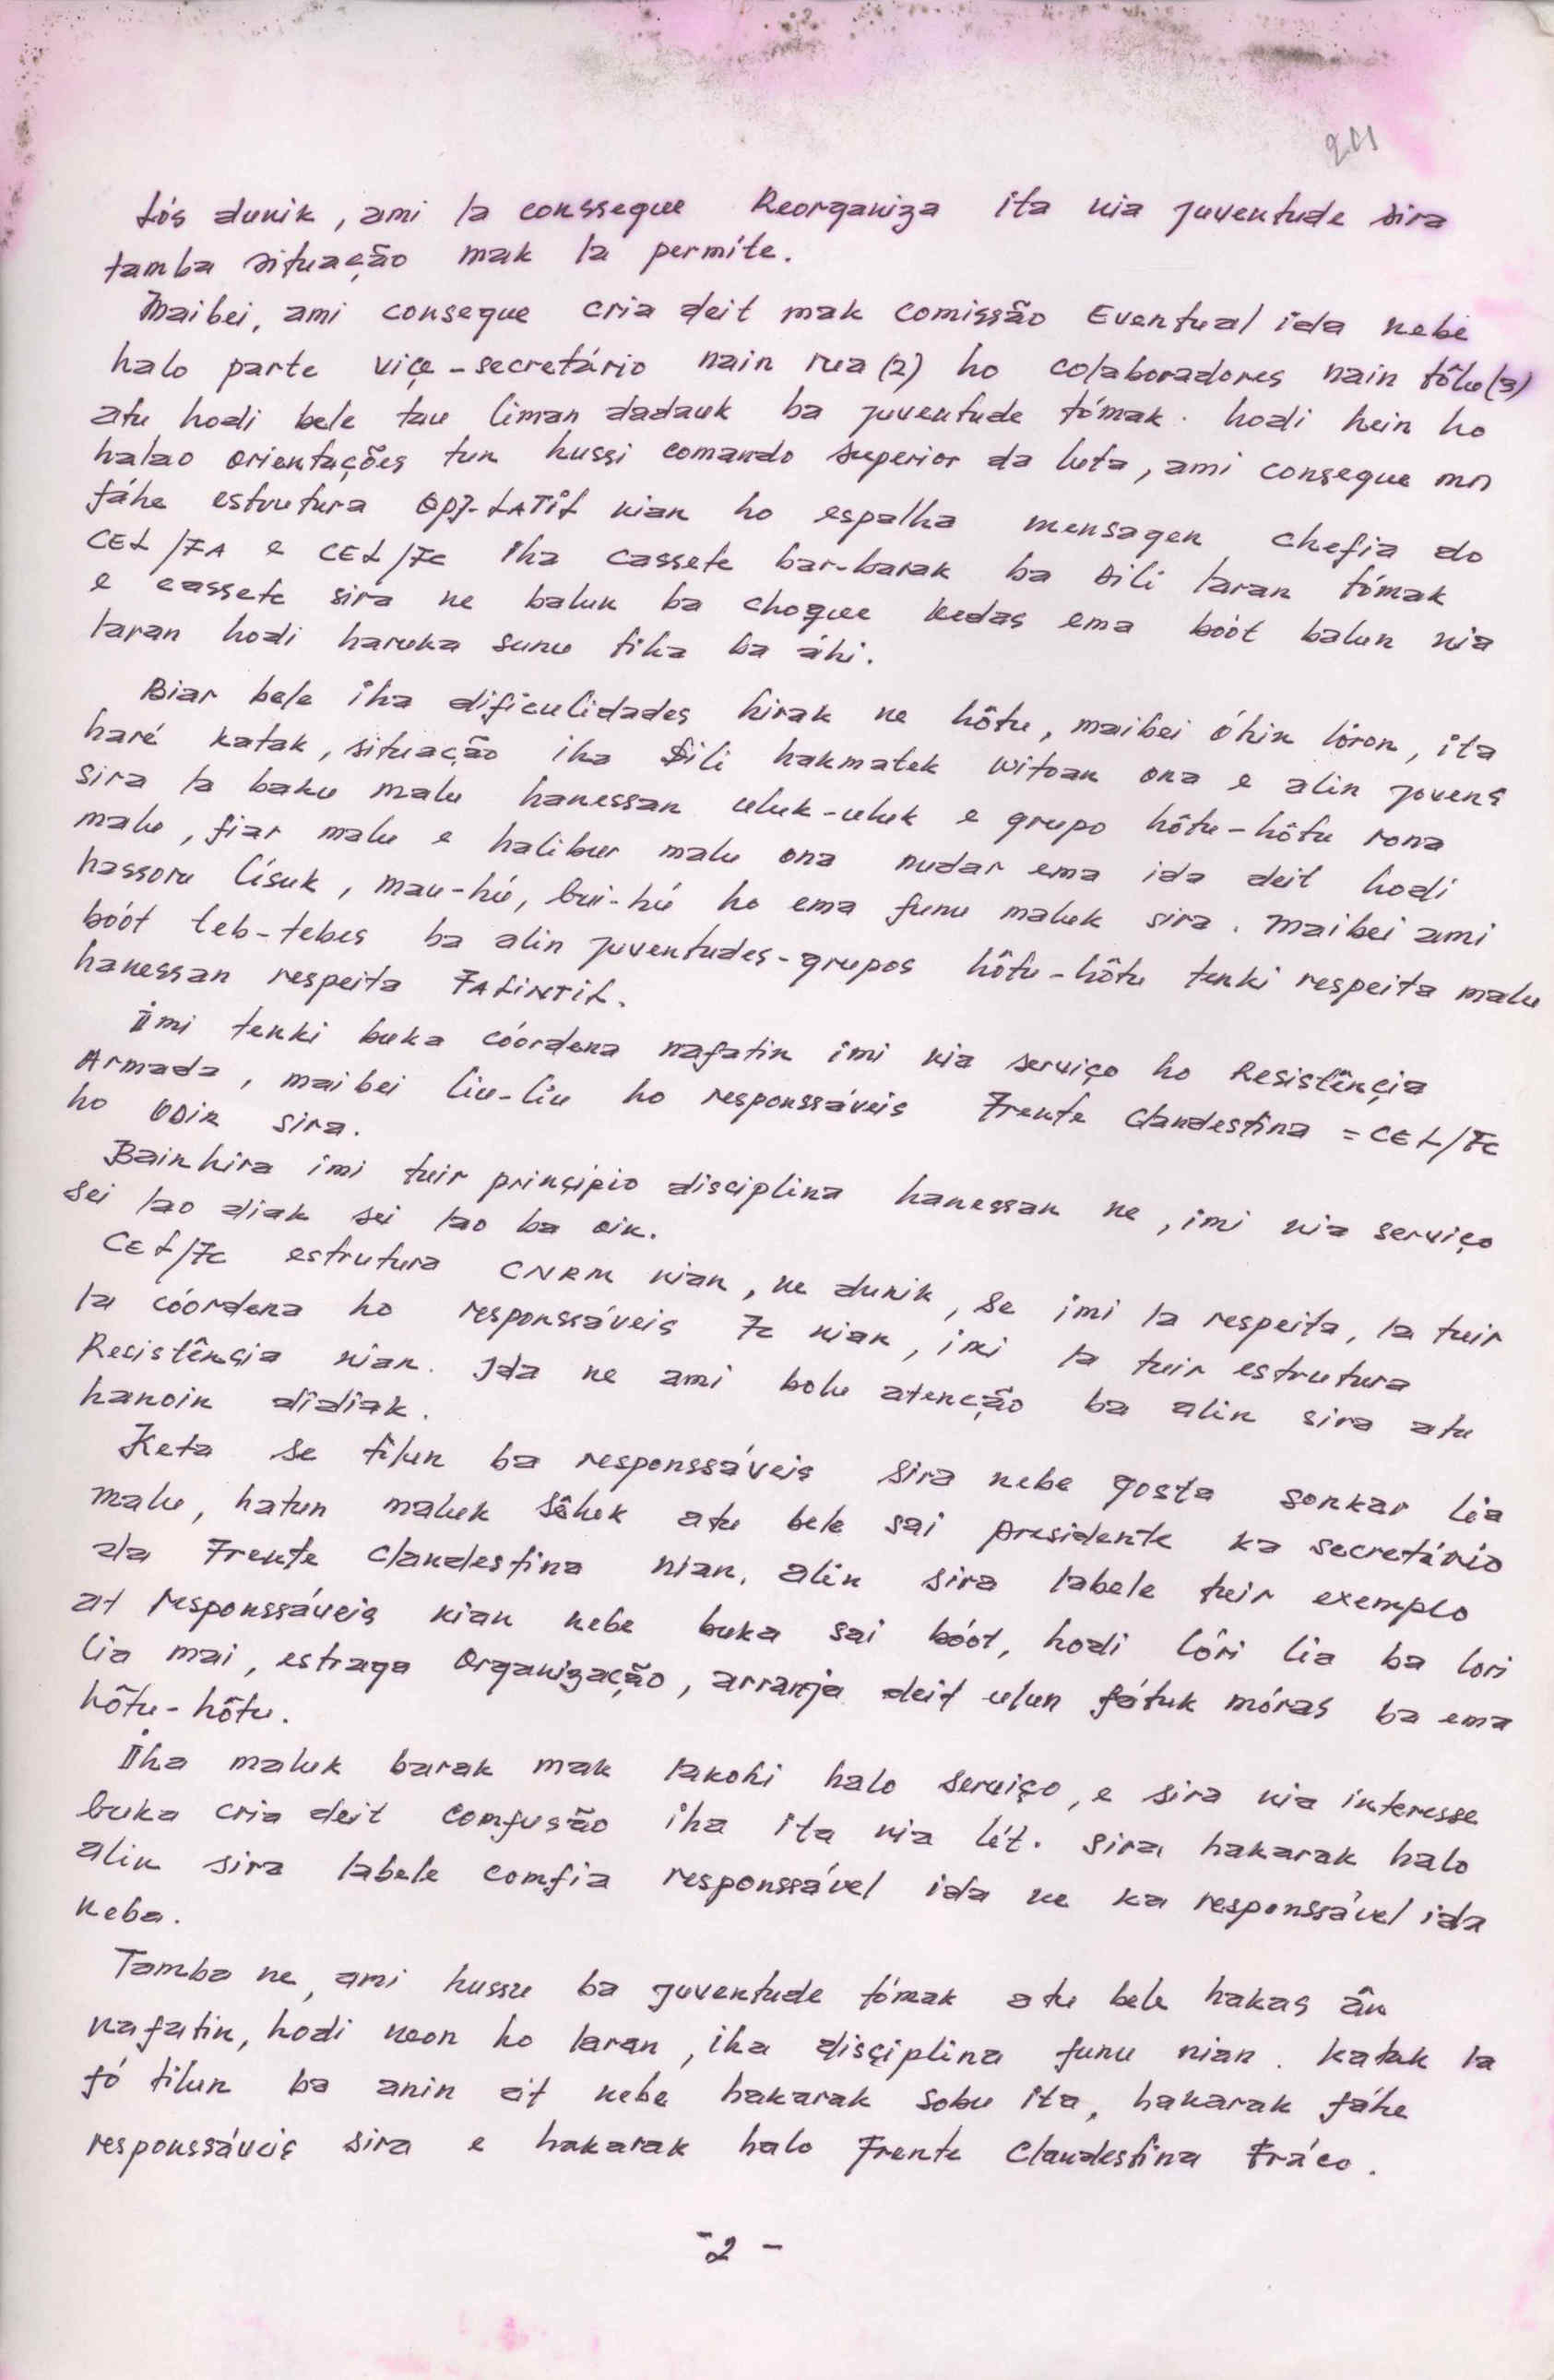 201
Lós dunik, ami la conssegue Reorganiza ita nia juventude sira
tamba situação mak la permite.
Maibei, ami consegue cria deit mak comissão Eventual ida nebe
halo parte viçe-secretário nain rua (2) ho colaboradores nain tôlu (3)
atu hodi bele tau liman dadauk ba juventude tómak. hodi hein ho
halao orientações tun hussi comando superior da luta, ami consegue mós
fáhe estrutura OPJ-LATIL nian ho espalha mensagen chefia do
CEL/FA e CEL/FC iha cassete bar-barak ba Dili laran tómak
e cassete sira ne balun ba choque kedas ema boót balun nia
laran hodi haruka sunu tiha ba áhi.
Biar bele iha dificulidades hirak ne hôtu, maibei óhin lôron, ita
haré katak, situação iha Dili hakmatek uitoan ona e alin jovens
sira la baku malu hanessan uluk-uluk e grupo hôtu-hôtu rona
malu, fiar malu e halibur malu ona nudar ema ida deit hodi
hassoru lísuk, mau-hú, bui-hú ho ema funu maluk sira. Maibei ami
boót teb-tebes ba alin juventudes-grupos hôtu-hôtu tenki respeita malu
hanessan respeita FALINTIL.
Imi tenki buka cóordena nafatin imi nia serviço ho Resistênçia
Armada, maibei liu-liu ho responssáveis Frente Clandestina = CEL/FC
ho ODIR sira.
Bainhira imi tuir prinçipio disciplina hanessan ne, imi nia serviço
sei lao diak sei lao ba oin.
CEL/FC estrutura CNRM nian, ne dunik, Se imi la respeita, la tuir
la cóordena ho responssáveis FC nian, imi la tuir estrutura
Resistênsia nian. Ida ne ami bolu atenção ba alin sira atu
hanoin dîdiak.
Keta se tilun ba responssáveis sira nebe gosta sonkar lia
malu, hatun maluk sêluk atu bele sai presidente ka secretário
da Frente Clandestina nian. alin sira labele tuir exemplo
at responssáveis nian nebe buka sai bóot, hodi lôri lia ba lori
lia mai, estraga Organização, arranja deit ulun fátuk móras ba ema
hôtu-hôtu.
Iha maluk barak mak lakohi halo serviço, e sira nia interesse
buka cria deit comfusão iha ita nia lét. Sira hakarak halo
alin sira labele comfia responssável ida ne ka responssável ida
neba.
Tamba ne, ami hussu ba juventude tómak atu bele hakas ân
nafatin, hodi neon ho laran, iha disçiplina funu nian. katak la
fó tilun ba anin át nebe hakarak sobu ita, hakarak fáhe
responssáveis sira e hakarak halo Frente Clandestina Fráco.
-2-